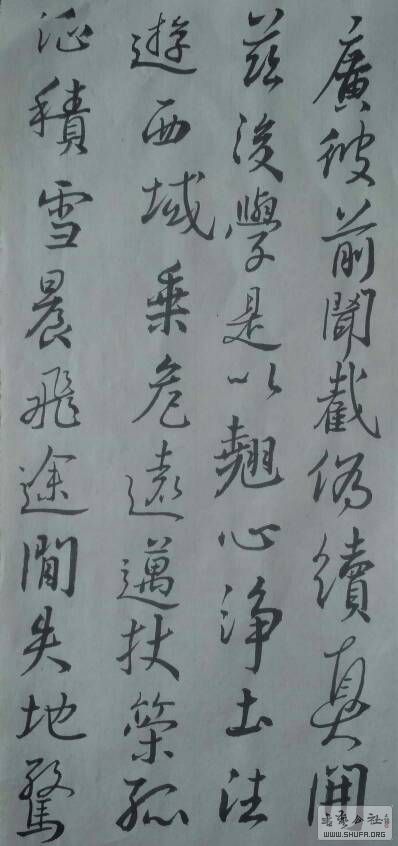 廣彼前聞截偽續真開
茲後學是以翹心淨土法
遊西域乘危遠邁杖策孤
征積雪晨飛途閒失地驚
书艺公社
WWW.SHUFA.ORG